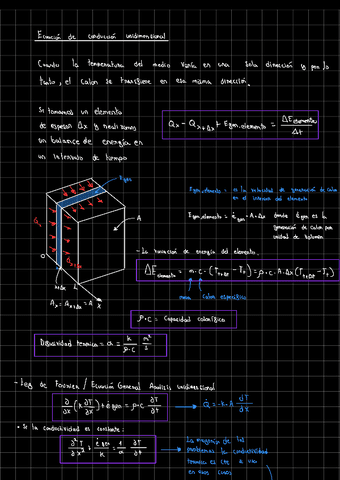 Ecuación de conducción unidimensional
Cuando la temperatura del medio varía en una sola dirección y por lo
tanto, el calor se transfiere en esa misma dirección.
Si tomamos un elemento
de espesor Δx y realizamos
un balance de energía en
un intervalo de tiempo
Qx - Qx+Δx + Egen,elemento = ΔEelemento / Δt
Egen
Egen,elemento = es la velocidad de generación de calor
en el interior del elemento
Egen,elemento = ėgen · A · Δx donde ėgen es la
generación de calor por
unidad de volumen
A
Q̇x
Q̇x+Δx
0
x
x+Δx
L
x
Ax = Ax+Δx = A
- La variación de energía del elemento.
ΔEelemento = m · c · (Tt+Δt - Tt) = ρ · c · A · Δx (Tt+Δt - Tt)
masa calor específico
ρ · c = capacidad calorífica
Difusividad térmica = α = k / ρ · c m² / s
- Ley de Fourier / Ecuación General Análisis unidimensional
∂/∂x (k ∂T/∂x) + ėgen = ρ · c · ∂T/∂t → Q̇ = -k · A dT/dx
• Si la conductividad es constante:
∂²T/∂x² + ėgen/k = 1/α ∂T/∂t → La mayoría de los
problemas la conductividad
térmica es cte a